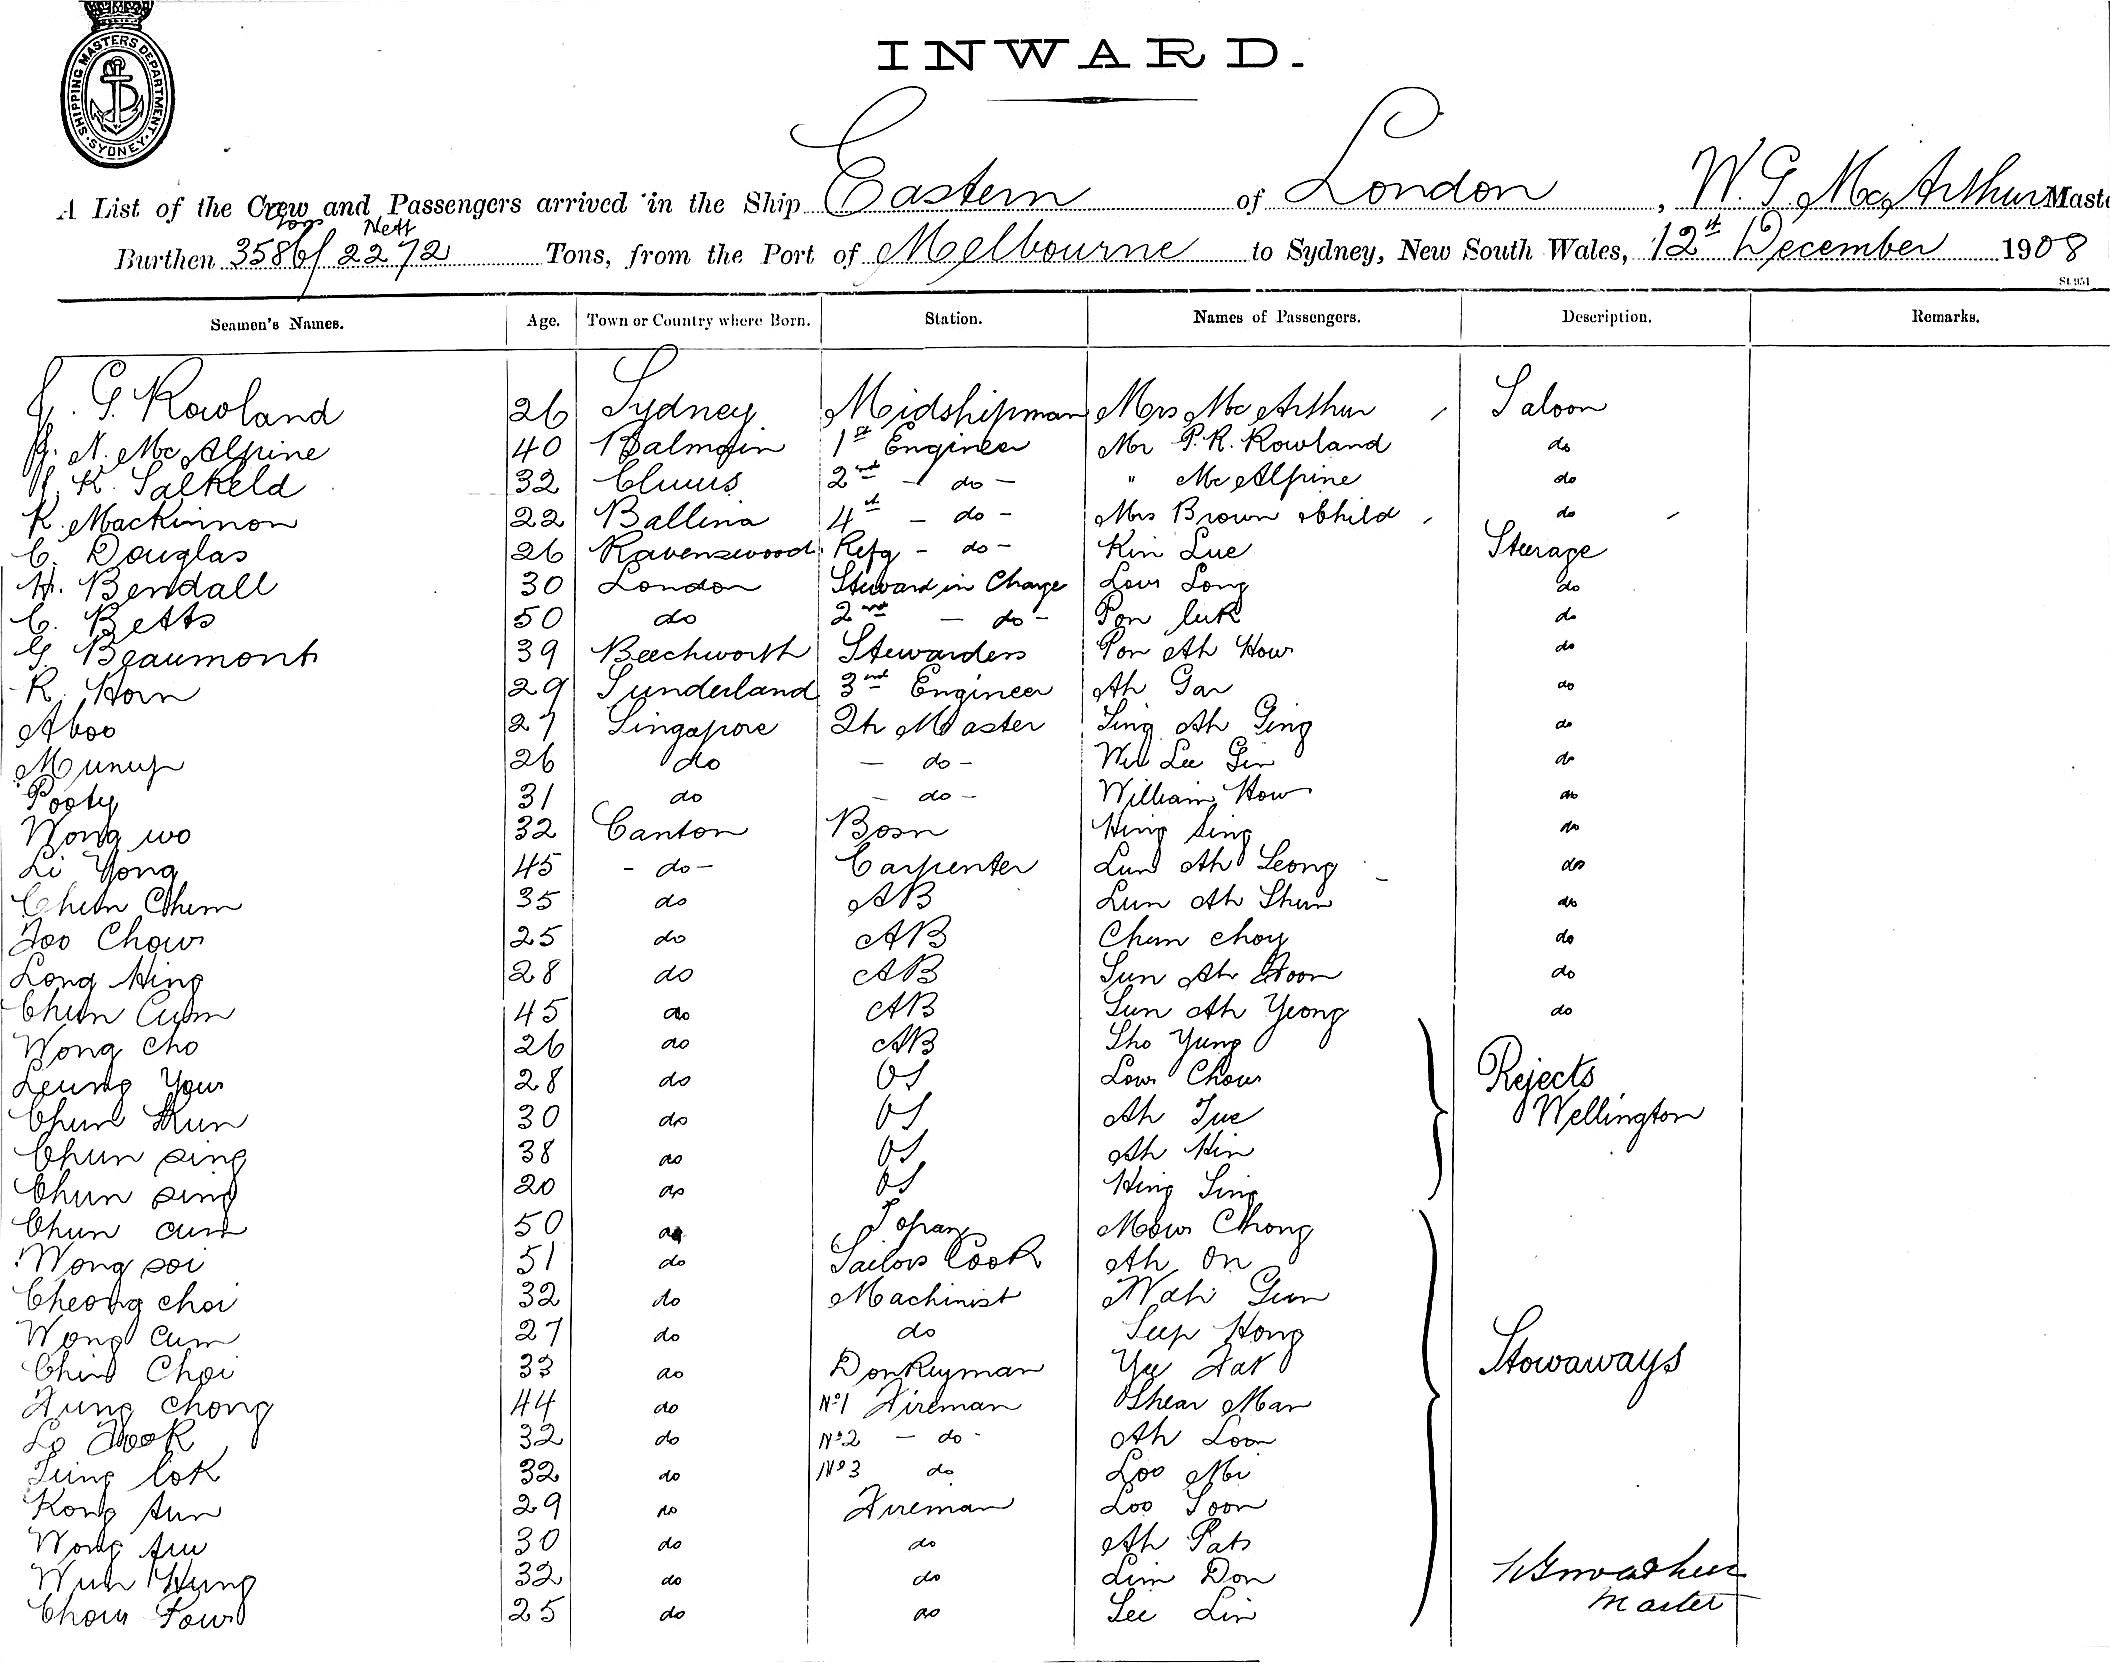 SHIPPING MASTERS DEPARTMENT · SYDNEY ·
INWARD.
A List of the Crew and Passengers arrived in the Ship Eastern of London, W. G. McArthur Maste
Tons Nett
Burthen 3586/2272 Tons, from the Port of Melbourne to Sydney, New South Wales, 12th December 1908
St 951
Seamen's Names. Age. Town or Country where Born. Station. Names of Passengers. Description. Remarks.
J. G. Rowland 26 Sydney Midshipman Mrs McArthur Saloon
N. McAlpine 40 Balmain 1st Engineer Mr P. R. Rowland do
K. Salkeld 32 2nd - do - " McAlpine do
R. Mackinnon 22 Ballina 4th - do - Mrs Brown & child do
C. Douglas 26 Ravenswood Refg - do - Kin Lue Steerage
H. Bendall 30 London Steward in Charge Low Long do
C. Betts 50 do 2nd - do - Pon luk do
G. Beaumont 39 Beechworth Stewardess Pon Ah How do
R. Horn 29 Sunderland 3rd Engineer Ah Gar do
Aboo 27 Singapore Qr Master Sing Ah Ging do
Munup 26 do - do - Lee Gin do
Pooty 31 do - do - William How do
Wong wo 32 Canton Bosn Hing Sing do
Li Yong 45 - do - Carpenter Lun Ah Leong do
Chun Chem 35 do AB Lun Ah Shun do
Foo Chow 25 do AB Chun choy do
Long Hing 28 do AB Sun Ah Hoon do
Chun Cum 45 do AB Sun Ah Yeong do
Wong cho 26 do AB Sho Yung
Leung Yow 28 do OS Low Chow Rejects
Chun Kun 30 do OS Ah Tue Wellington
Chun sing 38 do OS Ah Hin
Chun sing 20 do OS Hing Sing
Chun cum 50 do Topan Mow Chong
Wong soi 51 do Sailors Cook Ah On
Cheong choi 32 do Machinist Wah Gun
Wong cum 27 do do Seep Hong
Chin Choi 33 do Donkeyman Yee Fat Stowaways
Fung chong 44 do No 1 Fireman Shear Man
Lo Fook 32 do No 2 - do - Ah Loon
Tung lok 32 do No 3 do Loo Mi
Kong sun 29 do Fireman Loo Soon
Wong siu 30 do do Ah Pat
Wun Hung 32 do do Lim Don WGMcArthur
Chow Fow 25 do do Lee Lin Master